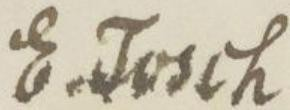 E. Tosch